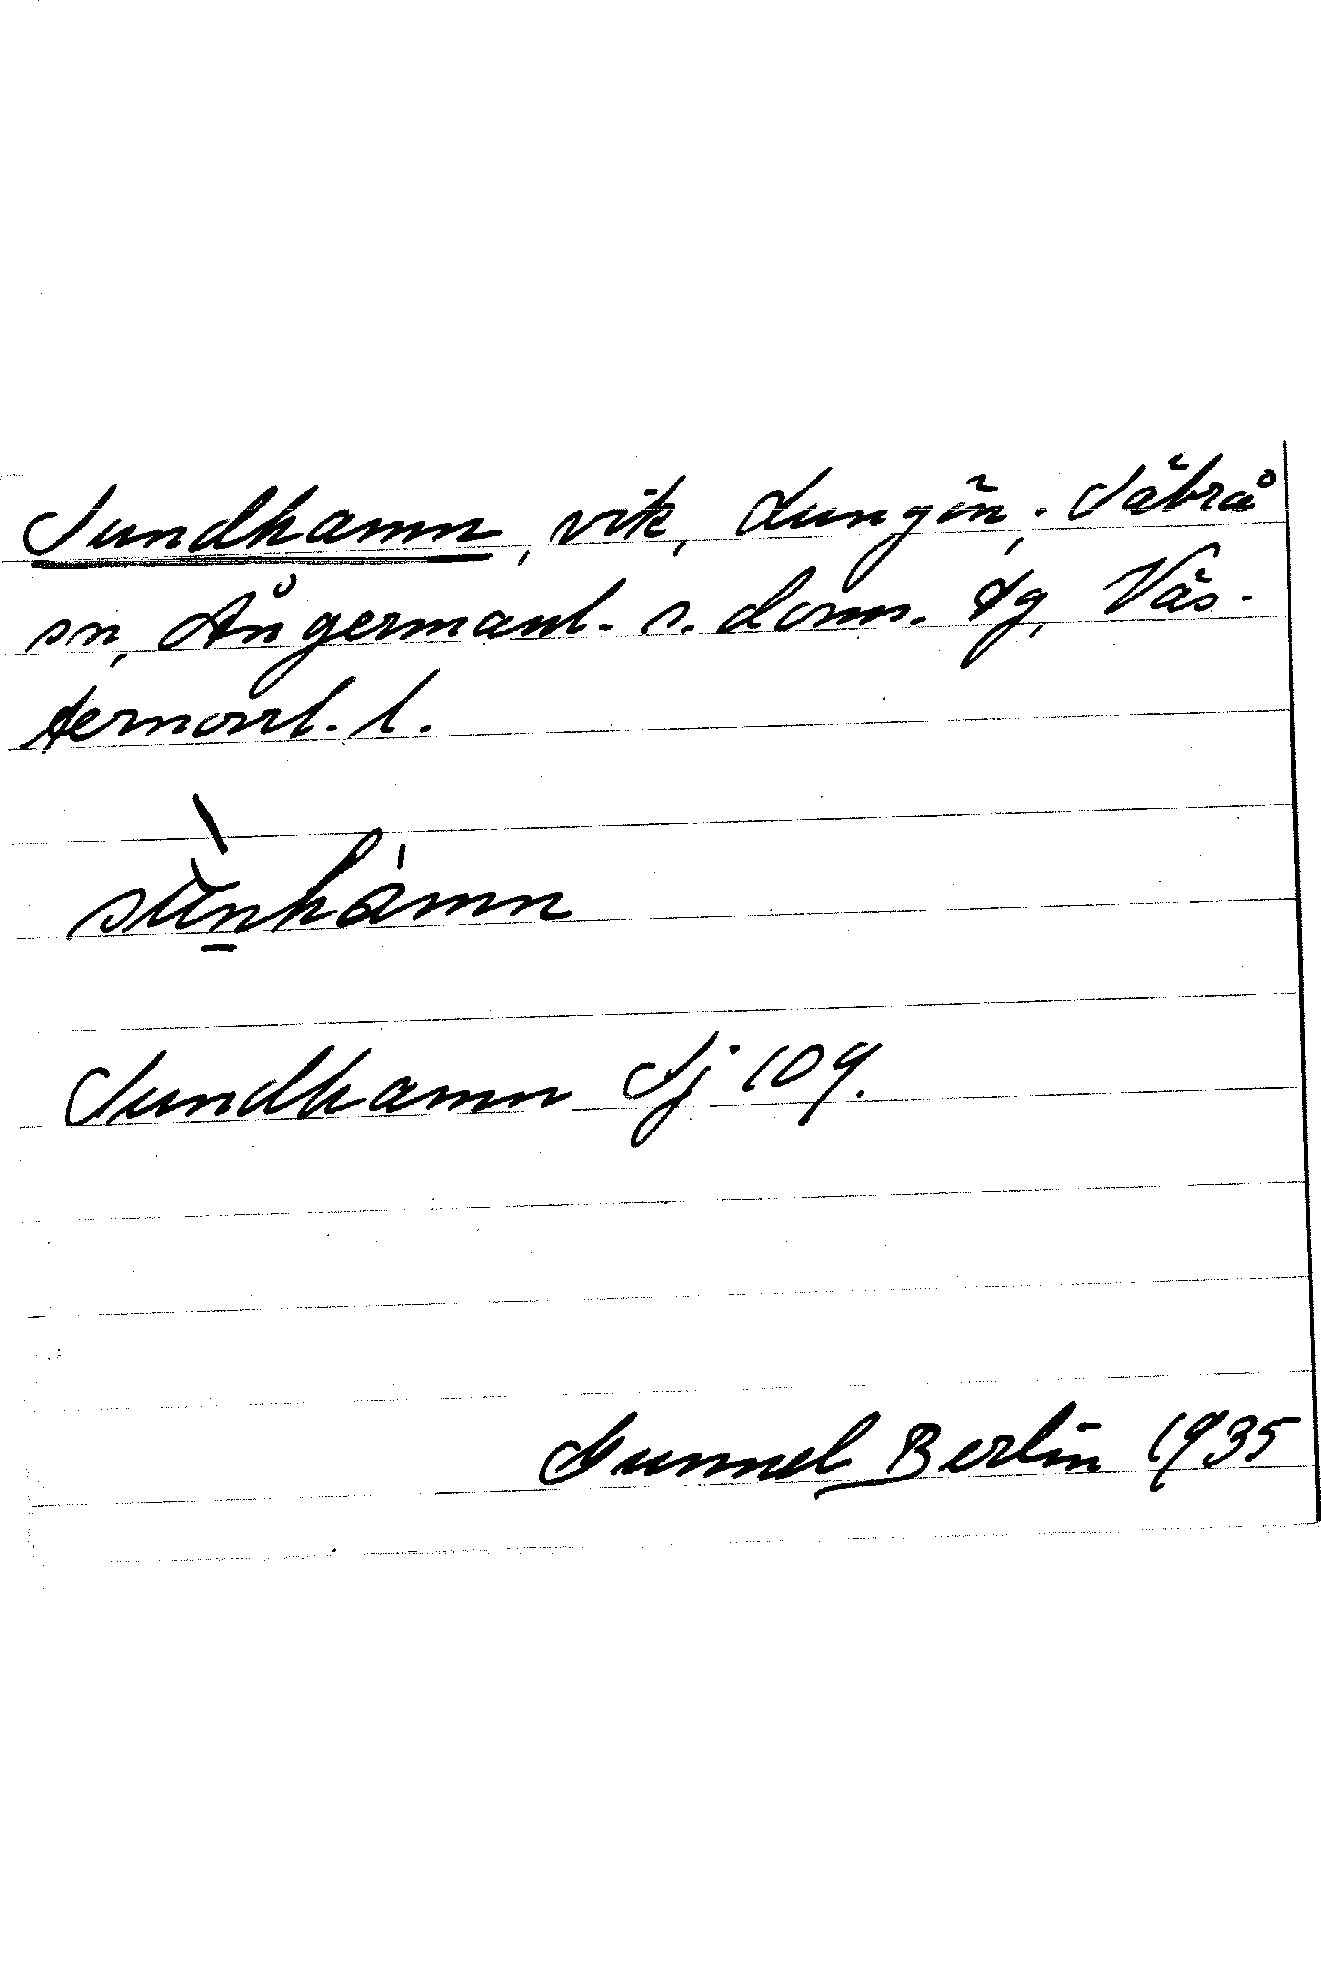 Sundhamn, vik, Lungön, Säbrå
sn, Ångermanl. s. doms. tg, Väs-
ternorrl. l.
sùnhámn
Sundhamn Sj 109.
Gunnel Berlin 1935